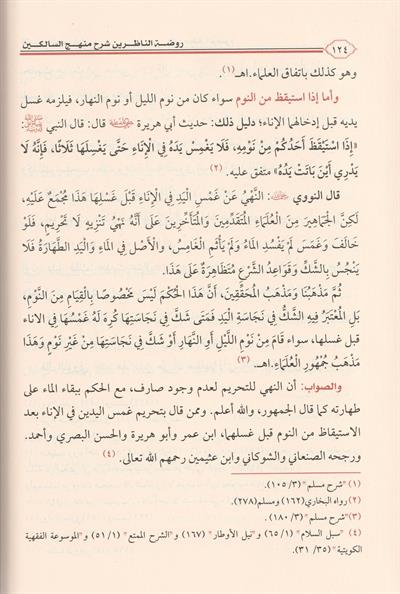 ١٢٤
روضة الناظرين شرح منهج السالكين
وهو كذلك باتفاق العلماء.اهـ.(١)
وأما إذا استيقظ من النوم سواء كان من نوم الليل أو نوم النهار، فيلزمه غسل
يديه قبل إدخالهما الإناء؛ دليل ذلك: حديث أبي هريرة رضي الله عنه قال: قال النبي ﷺ:
«إِذَا اسْتَيْقَظَ أَحَدُكُمْ مِنْ نَوْمِهِ، فَلَا يَغْمِسْ يَدَهُ فِي الْإِنَاءِ حَتَّى يَغْسِلَهَا ثَلَاثًا، فَإِنَّهُ لَا
يَدْرِي أَيْنَ بَاتَتْ يَدُهُ» متفق عليه.(٢)
قال النووي: النَّهْيُ عَنْ غَمْسِ الْيَدِ فِي الْإِنَاءِ قَبْلَ غَسْلِهَا هَذَا مُجْمَعٌ عَلَيْهِ،
لَكِنَّ الْجَمَاهِيرَ مِنَ الْعُلَمَاءِ الْمُتَقَدِّمِينَ وَالْمُتَأَخِّرِينَ عَلَى أَنَّهُ نَهْيُ تَنْزِيهٍ لَا تَحْرِيمٍ، فَلَوْ
خَالَفَ وَغَمَسَ لَمْ يَفْسُدِ الْمَاءُ وَلَمْ يَأْثَمِ الْغَامِسُ، وَالْأَصْلُ فِي الْمَاءِ وَالْيَدِ الطَّهَارَةُ فَلَا
يَنْجُسُ بِالشَّكِّ وَقَوَاعِدُ الشَّرْعِ مُتَظَاهِرَةٌ عَلَى هَذَا.
ثُمَّ مَذْهَبُنَا وَمَذْهَبُ الْمُحَقِّقِينَ، أَنَّ هَذَا الْحُكْمَ لَيْسَ مَخْصُوصًا بِالْقِيَامِ مِنَ النَّوْمِ،
بَلِ الْمُعْتَبَرُ فِيهِ الشَّكُّ فِي نَجَاسَةِ الْيَدِ فَمَتَى شَكَّ فِي نَجَاسَتِهَا كُرِهَ لَهُ غَمْسُهَا فِي الاناء
قبل غسلها، سواء قَامَ مِنْ نَوْمِ اللَّيْلِ أَوِ النَّهَارِ أَوْ شَكَّ فِي نَجَاسَتِهَا مِنْ غَيْرِ نَوْمٍ وَهَذَا
مَذْهَبُ جُمْهُورِ الْعُلَمَاءِ.اهـ.(٣)
والصواب: أن النهي للتحريم لعدم وجود صارف، مع الحكم ببقاء الماء على
طهارته كما قال الجمهور، والله أعلم. وممن قال بتحريم غمس اليدين في الإناء بعد
الاستيقاظ من النوم قبل غسلهما، ابن عمر وأبو هريرة والحسن البصري وأحمد.
ورجحه الصنعاني والشوكاني وابن عثيمين رحمهم الله تعالى.(٤)
(١) "شرح مسلم" (٣/ ١٠٥).
(٢) رواه البخاري(١٦٢) ومسلم(٢٧٨).
(٣)"شرح مسلم" (٣/ ١٨٠).
(٤) "سبل السلام" (١/ ٦٥) و"نيل الأوطار" (١٦٧) و"الشرح الممتع" (١/ ٥١) و"الموسوعة الفقهية
الكويتية" (٣٥/ ٣١).